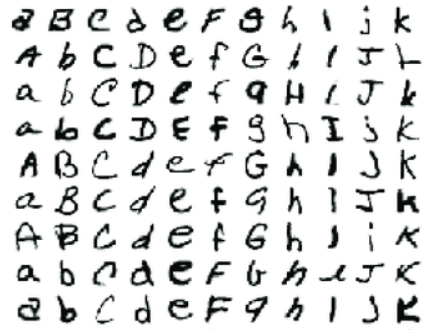 a B C d e F g h I j k
A b C D e f G h I J k
a b C D e f g H i J k
a b C D E f g h I j K
A B C d e f G h I J K
a B C d e f g h I J k
A B C d e f G h I i K
a b C d e F G h i J K
a b C d e F g h I j K